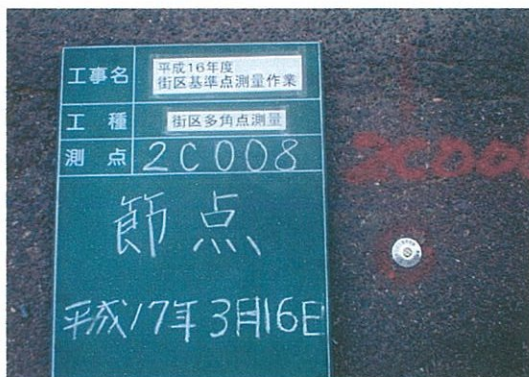 工事名
平成16年度
街区基準点測量作業
工種
街区多角点測量
測点
2C008
節点
平成17年3月16日
2C008